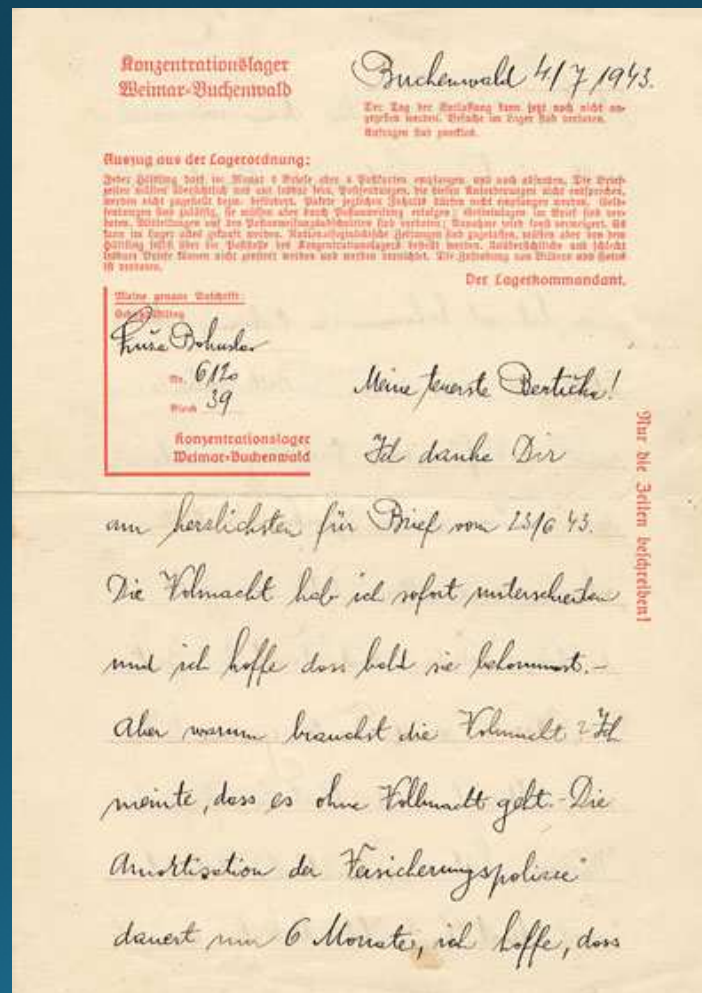 Konzentrationslager
Weimar-Buchenwald
Buchenwald 4/7 1943.
Der Tag der Entlassung kann jetzt noch nicht an-
gegeben werden. Besuche im Lager sind verboten.
Anfragen sind zwecklos.
Auszug aus der Lagerordnung:
Jeder Häftling darf im Monat 2 Briefe oder 2 Postkarten empfangen und auch absenden. Die Brief-
zeilen müssen übersichtlich und gut lesbar sein. Postsendungen, die diesen Anforderungen nicht entsprechen,
werden nicht zugestellt bezw. befördert. Pakete jeglichen Inhalts dürfen nicht empfangen werden. Geld-
sendungen sind zulässig, sie müssen aber durch Postanweisung erfolgen; Geldeinlagen im Brief sind ver-
boten. Mitteilungen auf den Postanweisungsabschnitten sind verboten; Annahme wird sonst verweigert. Es
kann im Lager alles gekauft werden. Nationalsozialistische Zeitungen sind zugelassen, müssen aber von dem
Häftling selbst über die Poststelle des Konzentrationslagers bestellt werden. Unübersichtliche und schlecht
lesbare Briefe können nicht zensiert werden und werden vernichtet. Die Zusendung von Bildern und Fotos
ist verboten.
Der Lagerkommandant.
Meine genaue Anschrift:
Schutzhäftling
Bohuslav
Nr. 6120
Block 39
Konzentrationslager
Weimar-Buchenwald
Nur die Zeilen beschreiben!
Meine teuerste Bertička!
Ich danke Dir
am herzlichsten für Brief vom 23/6 43.
Die Volmacht hab ich sofort
und ich hoffe dass bald sie bekommst.-
Aber warum brauchst die Volmacht? Ich
meinte, dass es ohne Vollmacht geht.- Die
Amortisation der Versicherungspolizze
dauert nur 6 Monate, ich hoffe, dass